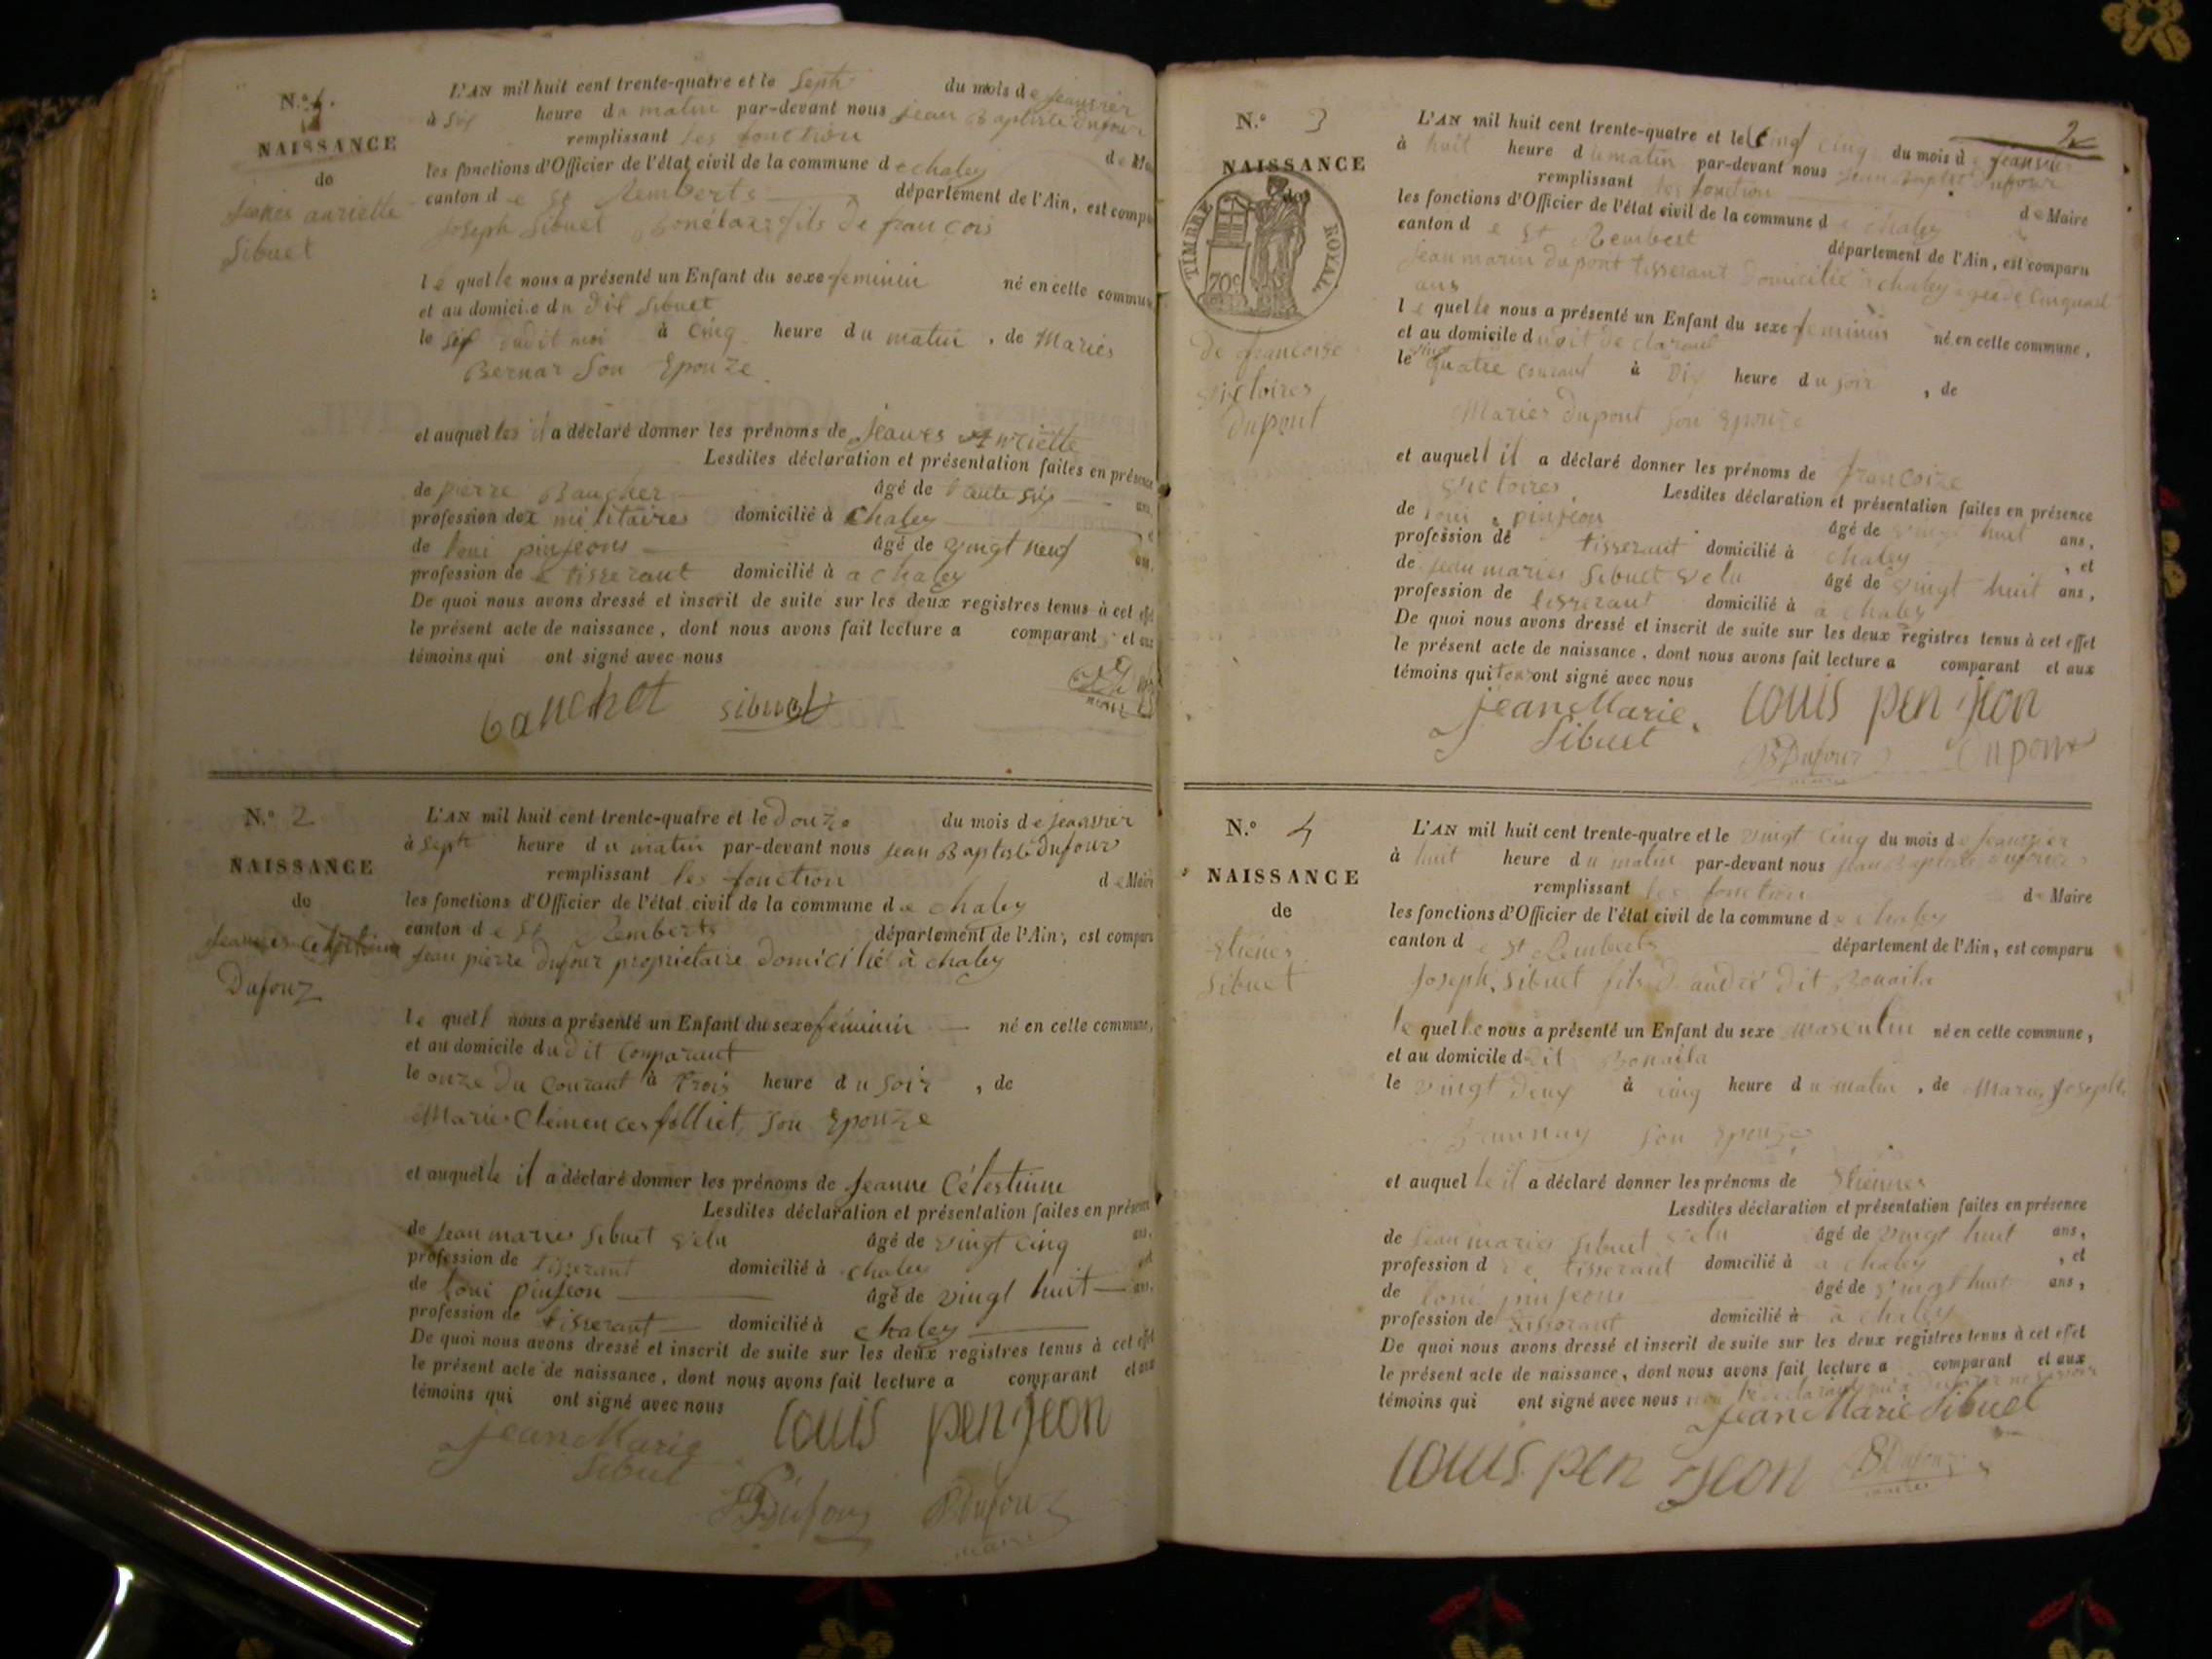 N.° 1.
NAISSANCE
de
Sibuet
L'AN mil huit cent trente-quatre et le Sept du mois de jeanvier
à six heure du matin par-devant nous jean Baptiste Dufour
remplissant les fonction de Mai
les fonctions d'Officier de l'état civil de la commune de chaley
canton de St Remberts département de l'Ain, est compa
Joseph Sibuet fils de francois
le quelle nous a présenté un Enfant du sexe feminin né en cette commune
et au domicile du dit Sibuet
le six dudit moi à cinq heure du matin, de Maries
Bernar Son Epouze
et auquelles il a déclaré donner les prénoms de jeanes
Lesdites déclaration et présentation faites en présence
de pierre Baucher âgé de trente six ans
profession de militaires domicilié à chaley
de loui pinjeons âgé de vingt neuf ans.
profession de tisserant domicilié à a chaley
De quoi nous avons dressé et inscrit de suite sur les deux registres tenus à cet effet
le présent acte de naissance, dont nous avons fait lecture a comparant et aux
témoins qui ont signé avec nous
bauchet sibuet
N.° 2
NAISSANCE
de
Dufour
L'AN mil huit cent trente-quatre et le douze du mois de jeanvier
à Sept heure du matin par-devant nous jean Baptiste Dufour
remplissant les fonction de Maire
les fonctions d'Officier de l'état civil de la commune de chaley
canton de St Remberts département de l'Ain, est comparu
jean pierre Dufour proprietaire domicilié à chaley
le quell nous a présenté un Enfant du sexe féminin né en cette commune,
et au domicile du dit comparant
le onze du courant à trois heure du soir, de
Marie Clémences folliet, Son Epouze
et auquelle il a déclaré donner les prénoms de Jeanne Célestinne
Lesdites déclaration et présentation faites en présence
de jean maries Sibuet velu âgé de vingt cinq ans,
profession de tisserant domicilié à chaley et
de loui pinjeon âgé de vingt huit ans,
profession de tisserant domicilié à chaley
De quoi nous avons dressé et inscrit de suite sur les deux registres tenus à cet effet
le présent acte de naissance, dont nous avons fait lecture a comparant et aux
témoins qui ont signé avec nous
jean Marie louis penjeon
Sibuet
Dufour BDufour
maire
2
N.° 3
NAISSANCE
de
TIMBRE ROYAL
70c
de francoise
victoires
dupont
L'AN mil huit cent trente-quatre et le cinq du mois de jeanvier
à huit heure du matin par-devant nous jean Baptiste Dufour
remplissant les fonction de Maire
les fonctions d'Officier de l'état civil de la commune de chaley
canton de St Rembert département de l'Ain, est comparu
jean marin dupont tisserant domicilié à chaley age de cinquant
ans
le quelle nous a présenté un Enfant du sexe feminin né en cette commune,
et au domicile dudit declarant
le vingt quatre courant à Dix heure du soir, de
Maries dupont Son Epouze
et auquell il a déclaré donner les prénoms de francoize
victoires. Lesdites déclaration et présentation faites en présence
de loui pinjeon âgé de vingt huit ans,
profession de tisserant domicilié à chaley, et
de jean maries Sibuet velu âgé de vingt huit ans,
profession de tisserant domicilié à a chaley
De quoi nous avons dressé et inscrit de suite sur les deux registres tenus à cet effet
le présent acte de naissance, dont nous avons fait lecture a comparant et aux
témoins qui ont signé avec nous
jean Marie louis pen jeon
Sibuet BDufour Dupont
maire
N.° 4
NAISSANCE
de
Etienes
Sibuet
L'AN mil huit cent trente-quatre et le vingt cinq du mois de jeanvier
à huit heure du matin par-devant nous jean Baptiste Dufour
remplissant les fonction de Maire
les fonctions d'Officier de l'état civil de la commune de chaley
canton de St Remberts département de l'Ain, est comparu
Joseph Sibuet fils d'andré dit Bonaila
le quelle nous a présenté un Enfant du sexe masculin né en cette commune,
et au domicile dudit Bonaila
le vingt deux à cinq heure du matin, de Maries Joseph
Son Epouze
et auquelle il a déclaré donner les prénoms de Etiennes
Lesdites déclaration et présentation faites en présence
de jean maries Sibuet velu âgé de vingt huit ans,
profession de tisserant domicilié à a chaley, et
de loui pinjeons âgé de vingt huit ans,
profession de tisserant domicilié à a chaley
De quoi nous avons dressé et inscrit de suite sur les deux registres tenus à cet effet
le présent acte de naissance, dont nous avons fait lecture a comparant et aux
témoins qui ont signé avec nous
jean Marie Sibuet
louis pen jeon BDufour
maire